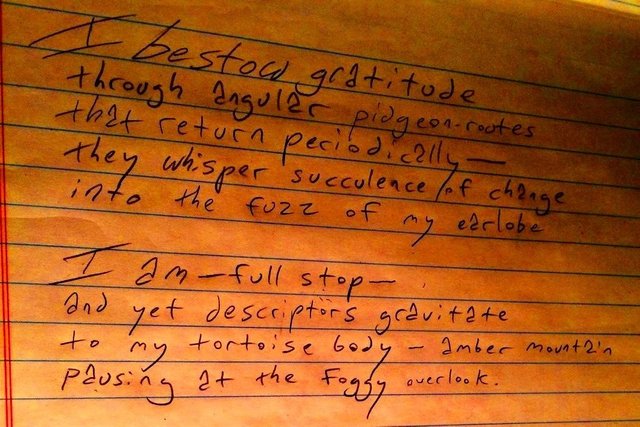 I bestow gratitude
through angular pidgeon-routes
that return periodically—
they whisper succulence of change
into the fuzz of my earlobe
I am—full stop—
and yet descriptors gravitate
to my tortoise body - amber mountain
pausing at the foggy overlook.